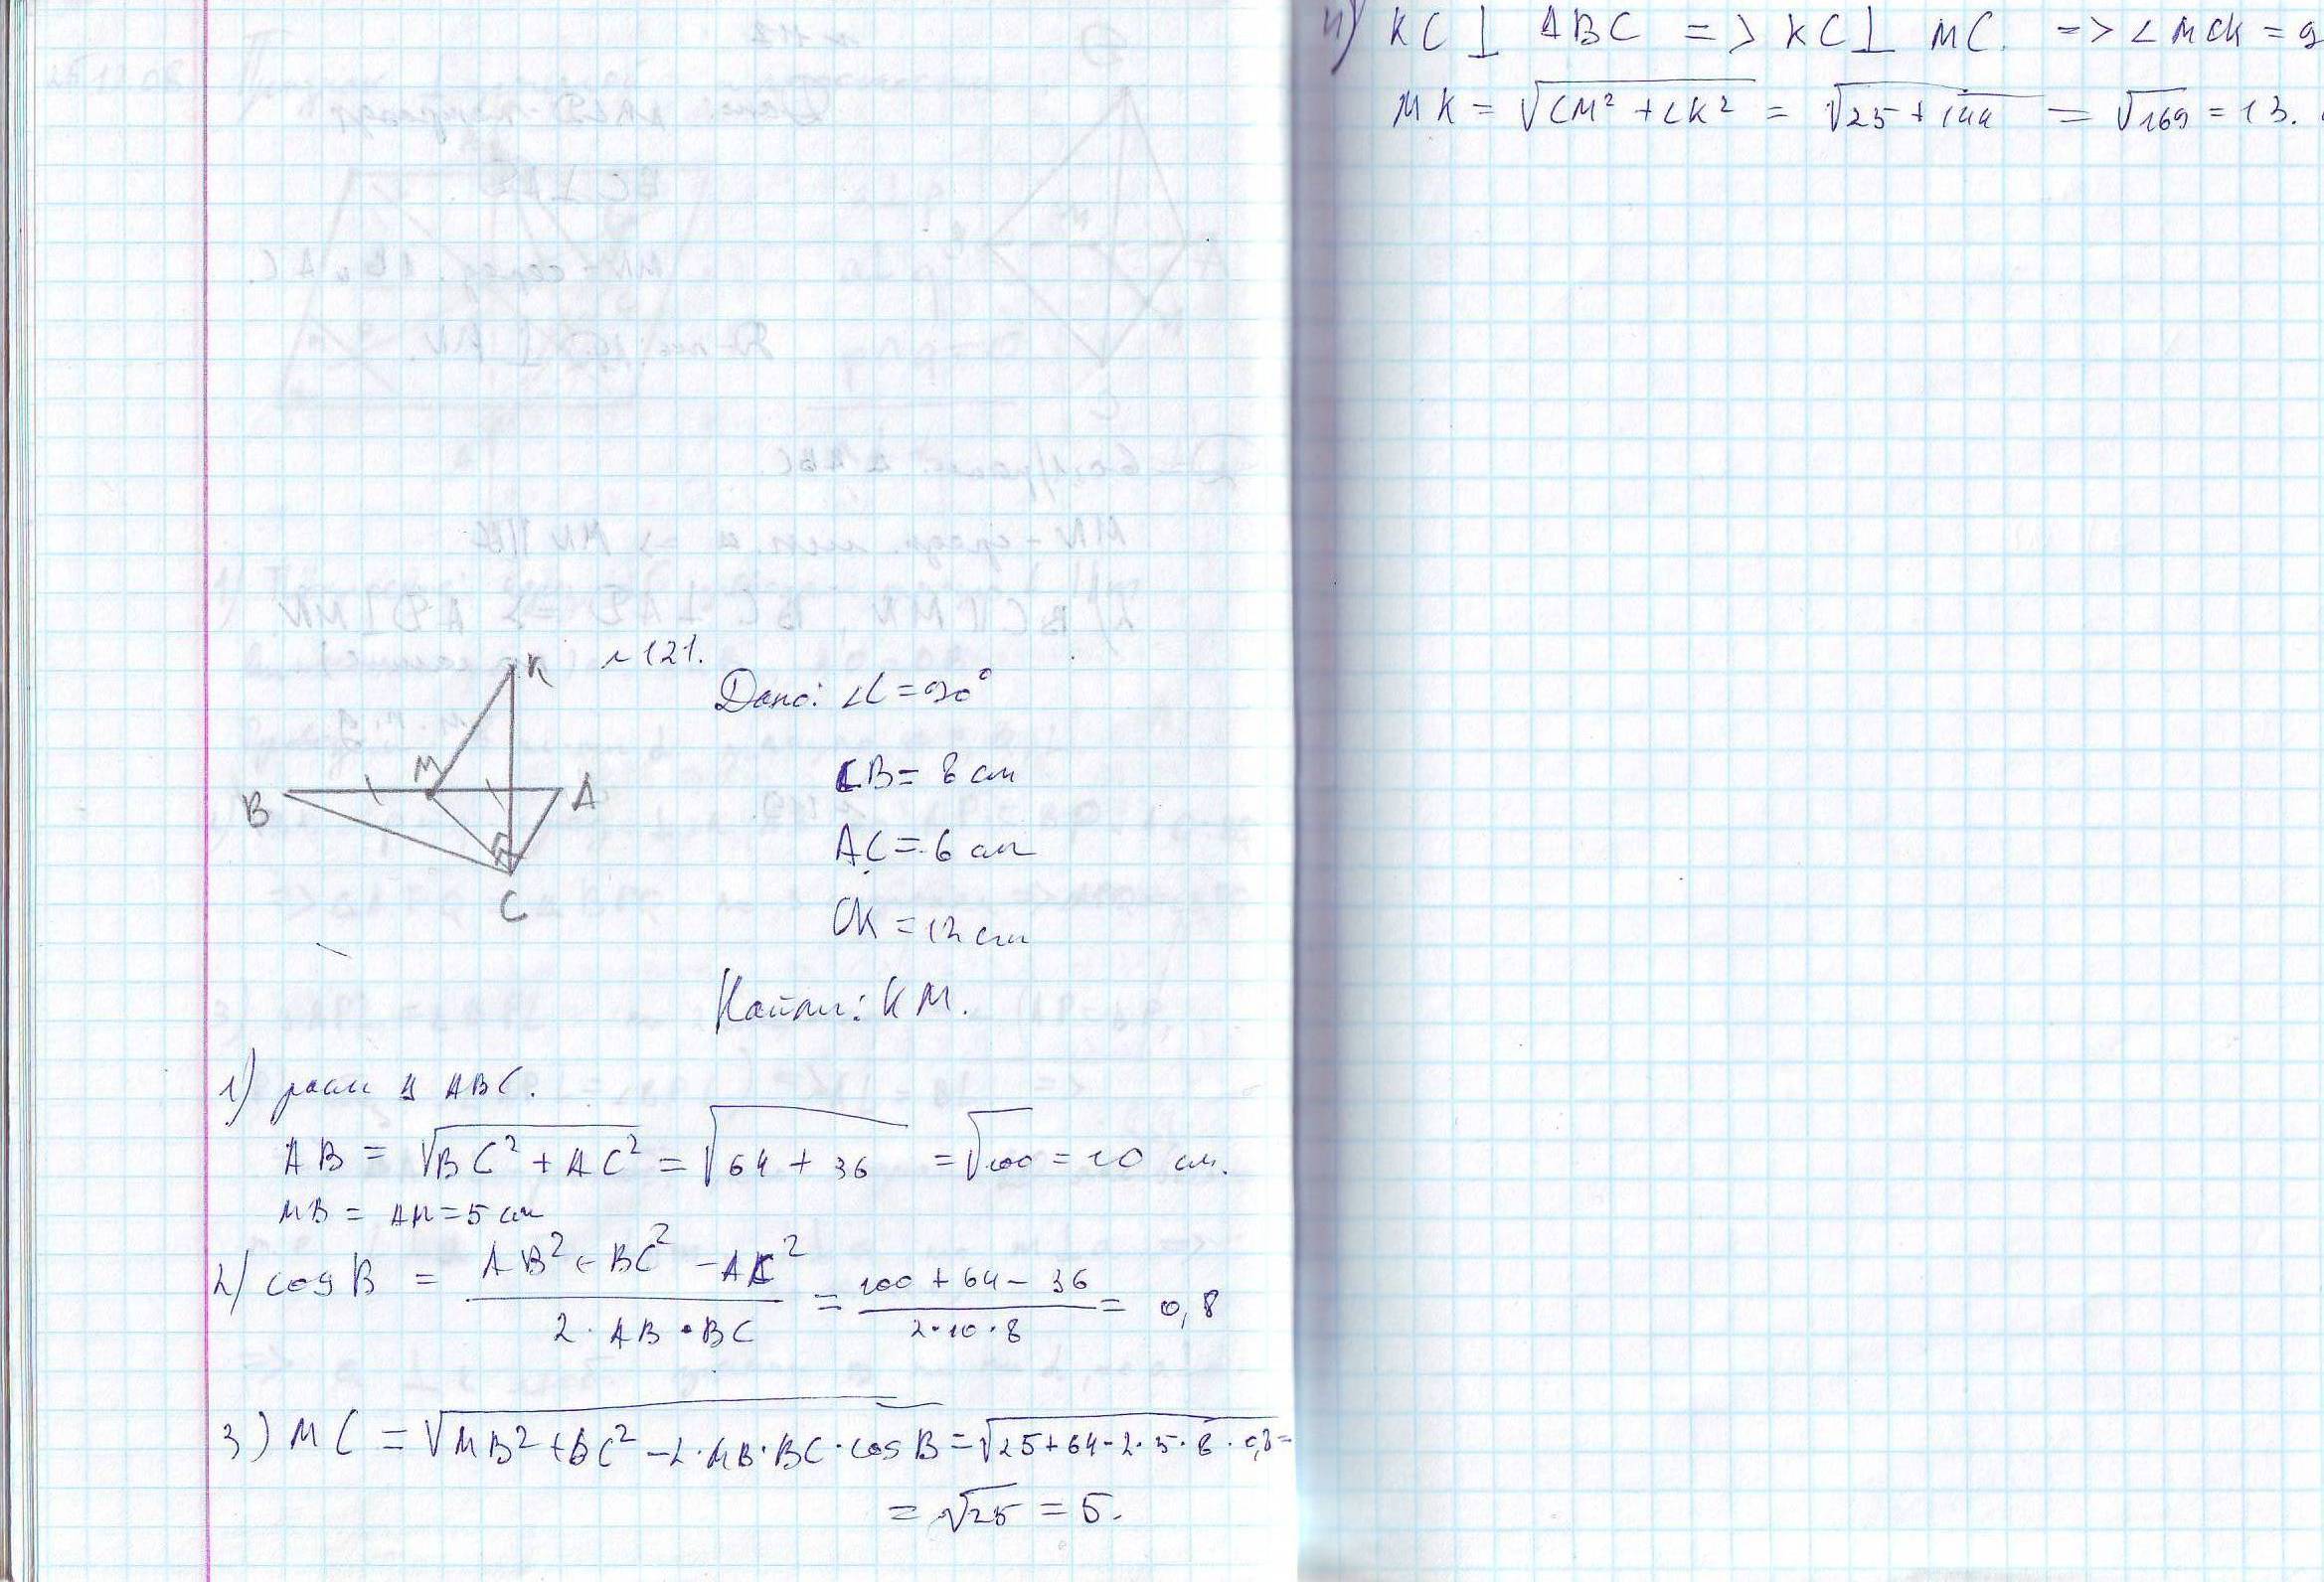 К
М
В
А
С
№ 121.
Дано: ∠C = 90°
CB = 8 см
AC = 6 см
CK = 12 см
Найти: KM.
1) рассм Δ ABC.
AB = √BC² + AC² = √64 + 36 = √100 = 10 см.
MB = AM = 5 см
2) cos B = AB² + BC² - AC² / 2 · AB · BC = 100 + 64 - 36 / 2 · 10 · 8 = 0,8
3) MC = √MB² + BC² - 2 · MB · BC · cos B = √25 + 64 - 2 · 5 · 8 · 0,8 =
= √25 = 5.
4) KC ⊥ ABC => KC ⊥ MC. => ∠MCK = 9
MK = √CM² + CK² = √25 + 144 = √169 = 13.